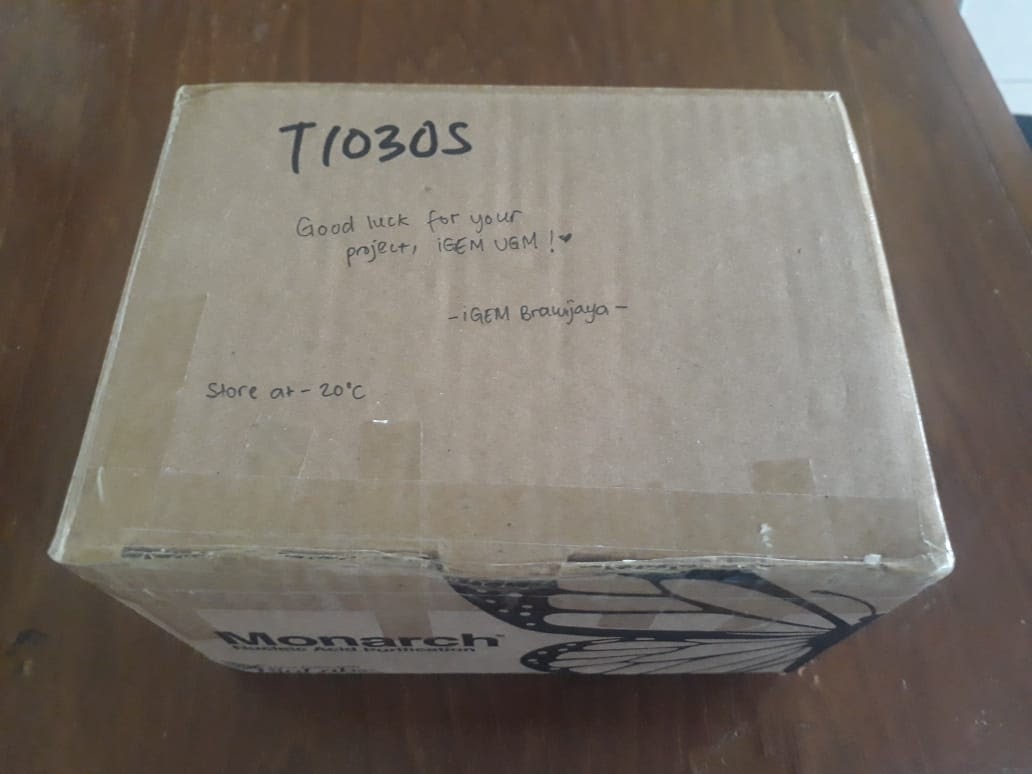 T1030S
Good luck for your
project, iGEM UGM ! ♥
- iGEM Brawijaya -
Store at - 20°C
Monarch
Nucleic Acid Purification